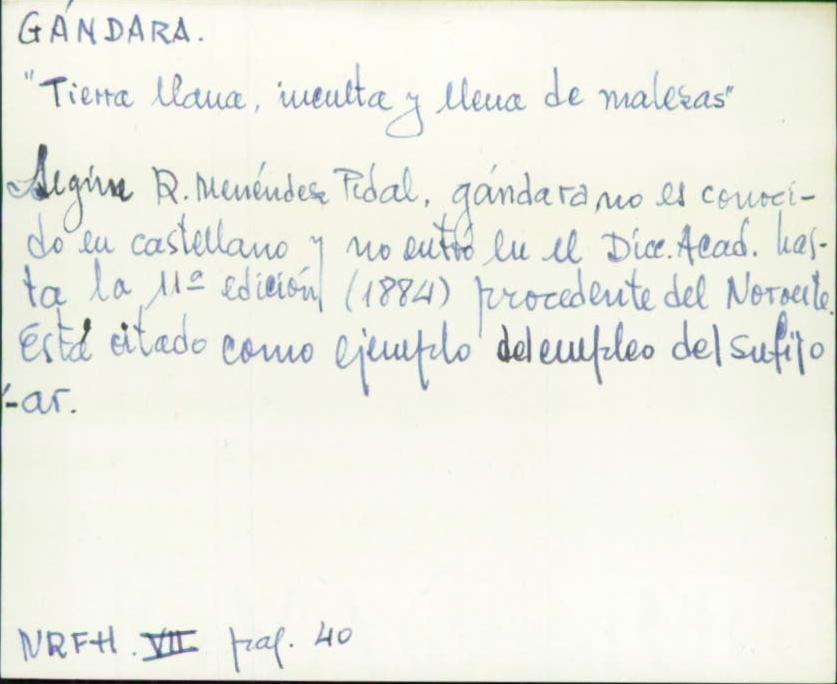 GÁNDARA.
"Tierra llana, inculta y llena de malezas"
Según R. Menéndez Pidal, gándara, no es conoci-
do en castellano y no entró en el Dicc. Acad. has-
ta la 11ª edición (1884) procedente del Noroeste.
Está citado como ejemplo del empleo del sufijo
´-ar.
NRFH. VII pag. 40